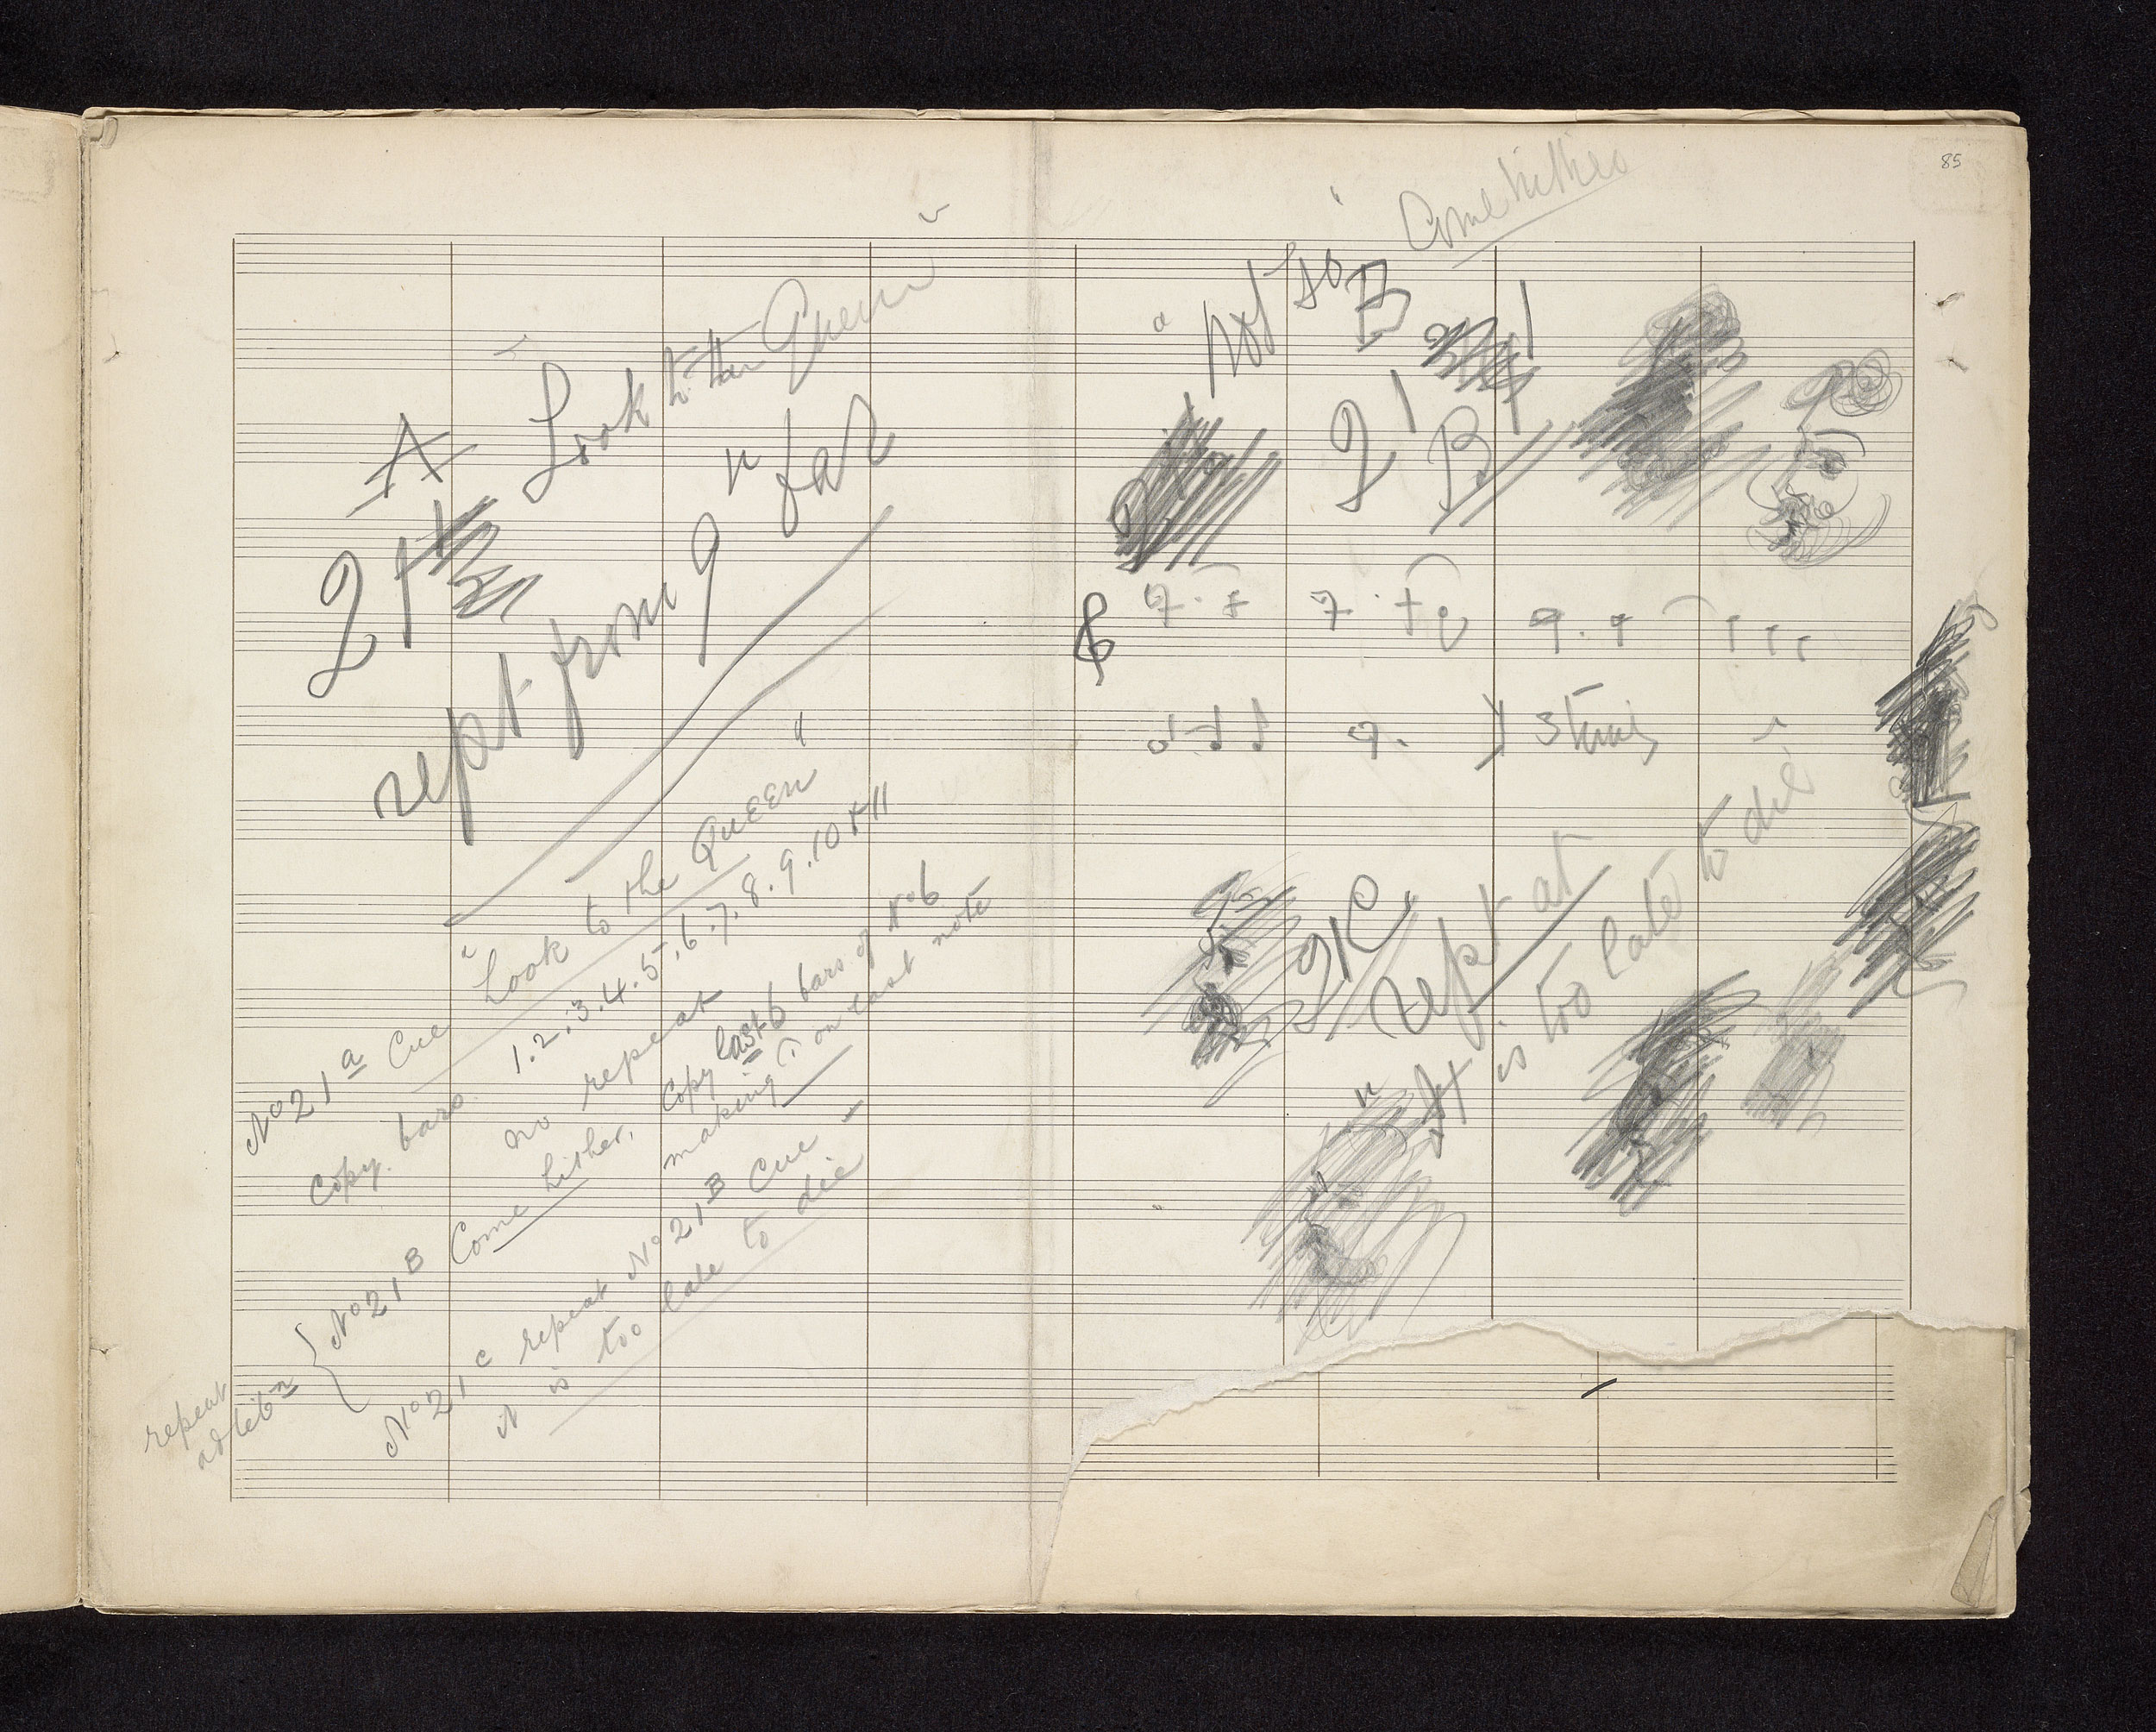 85
A "Look to the Queen"
21
rept from 9 " far
Nº 21 a Cue "Look to the Queen"
Copy bars. 1.2.3.4.5.6.7.8.9.10+11
no repeat
Nº 21 B Come hither, Copy last 6 bars of Nº 6
making on last note
repeat
ad lib
Nº 21 c repeat Nº 21 B Cue
it is too late to die
Come hither
" Not so "
B
21
B
21C
rept at
" It is too late to die "